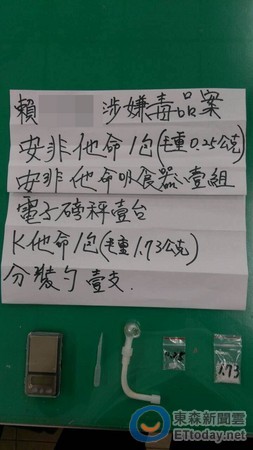 賴 涉嫌毒品案
安非他命1包(毛重0.25公克)
安非他命吸食器壹組
電子磅秤壹台
K他命1包(毛重1.73公克)
分裝勺壹支.
1.73
東森新聞雲
ETtoday.net